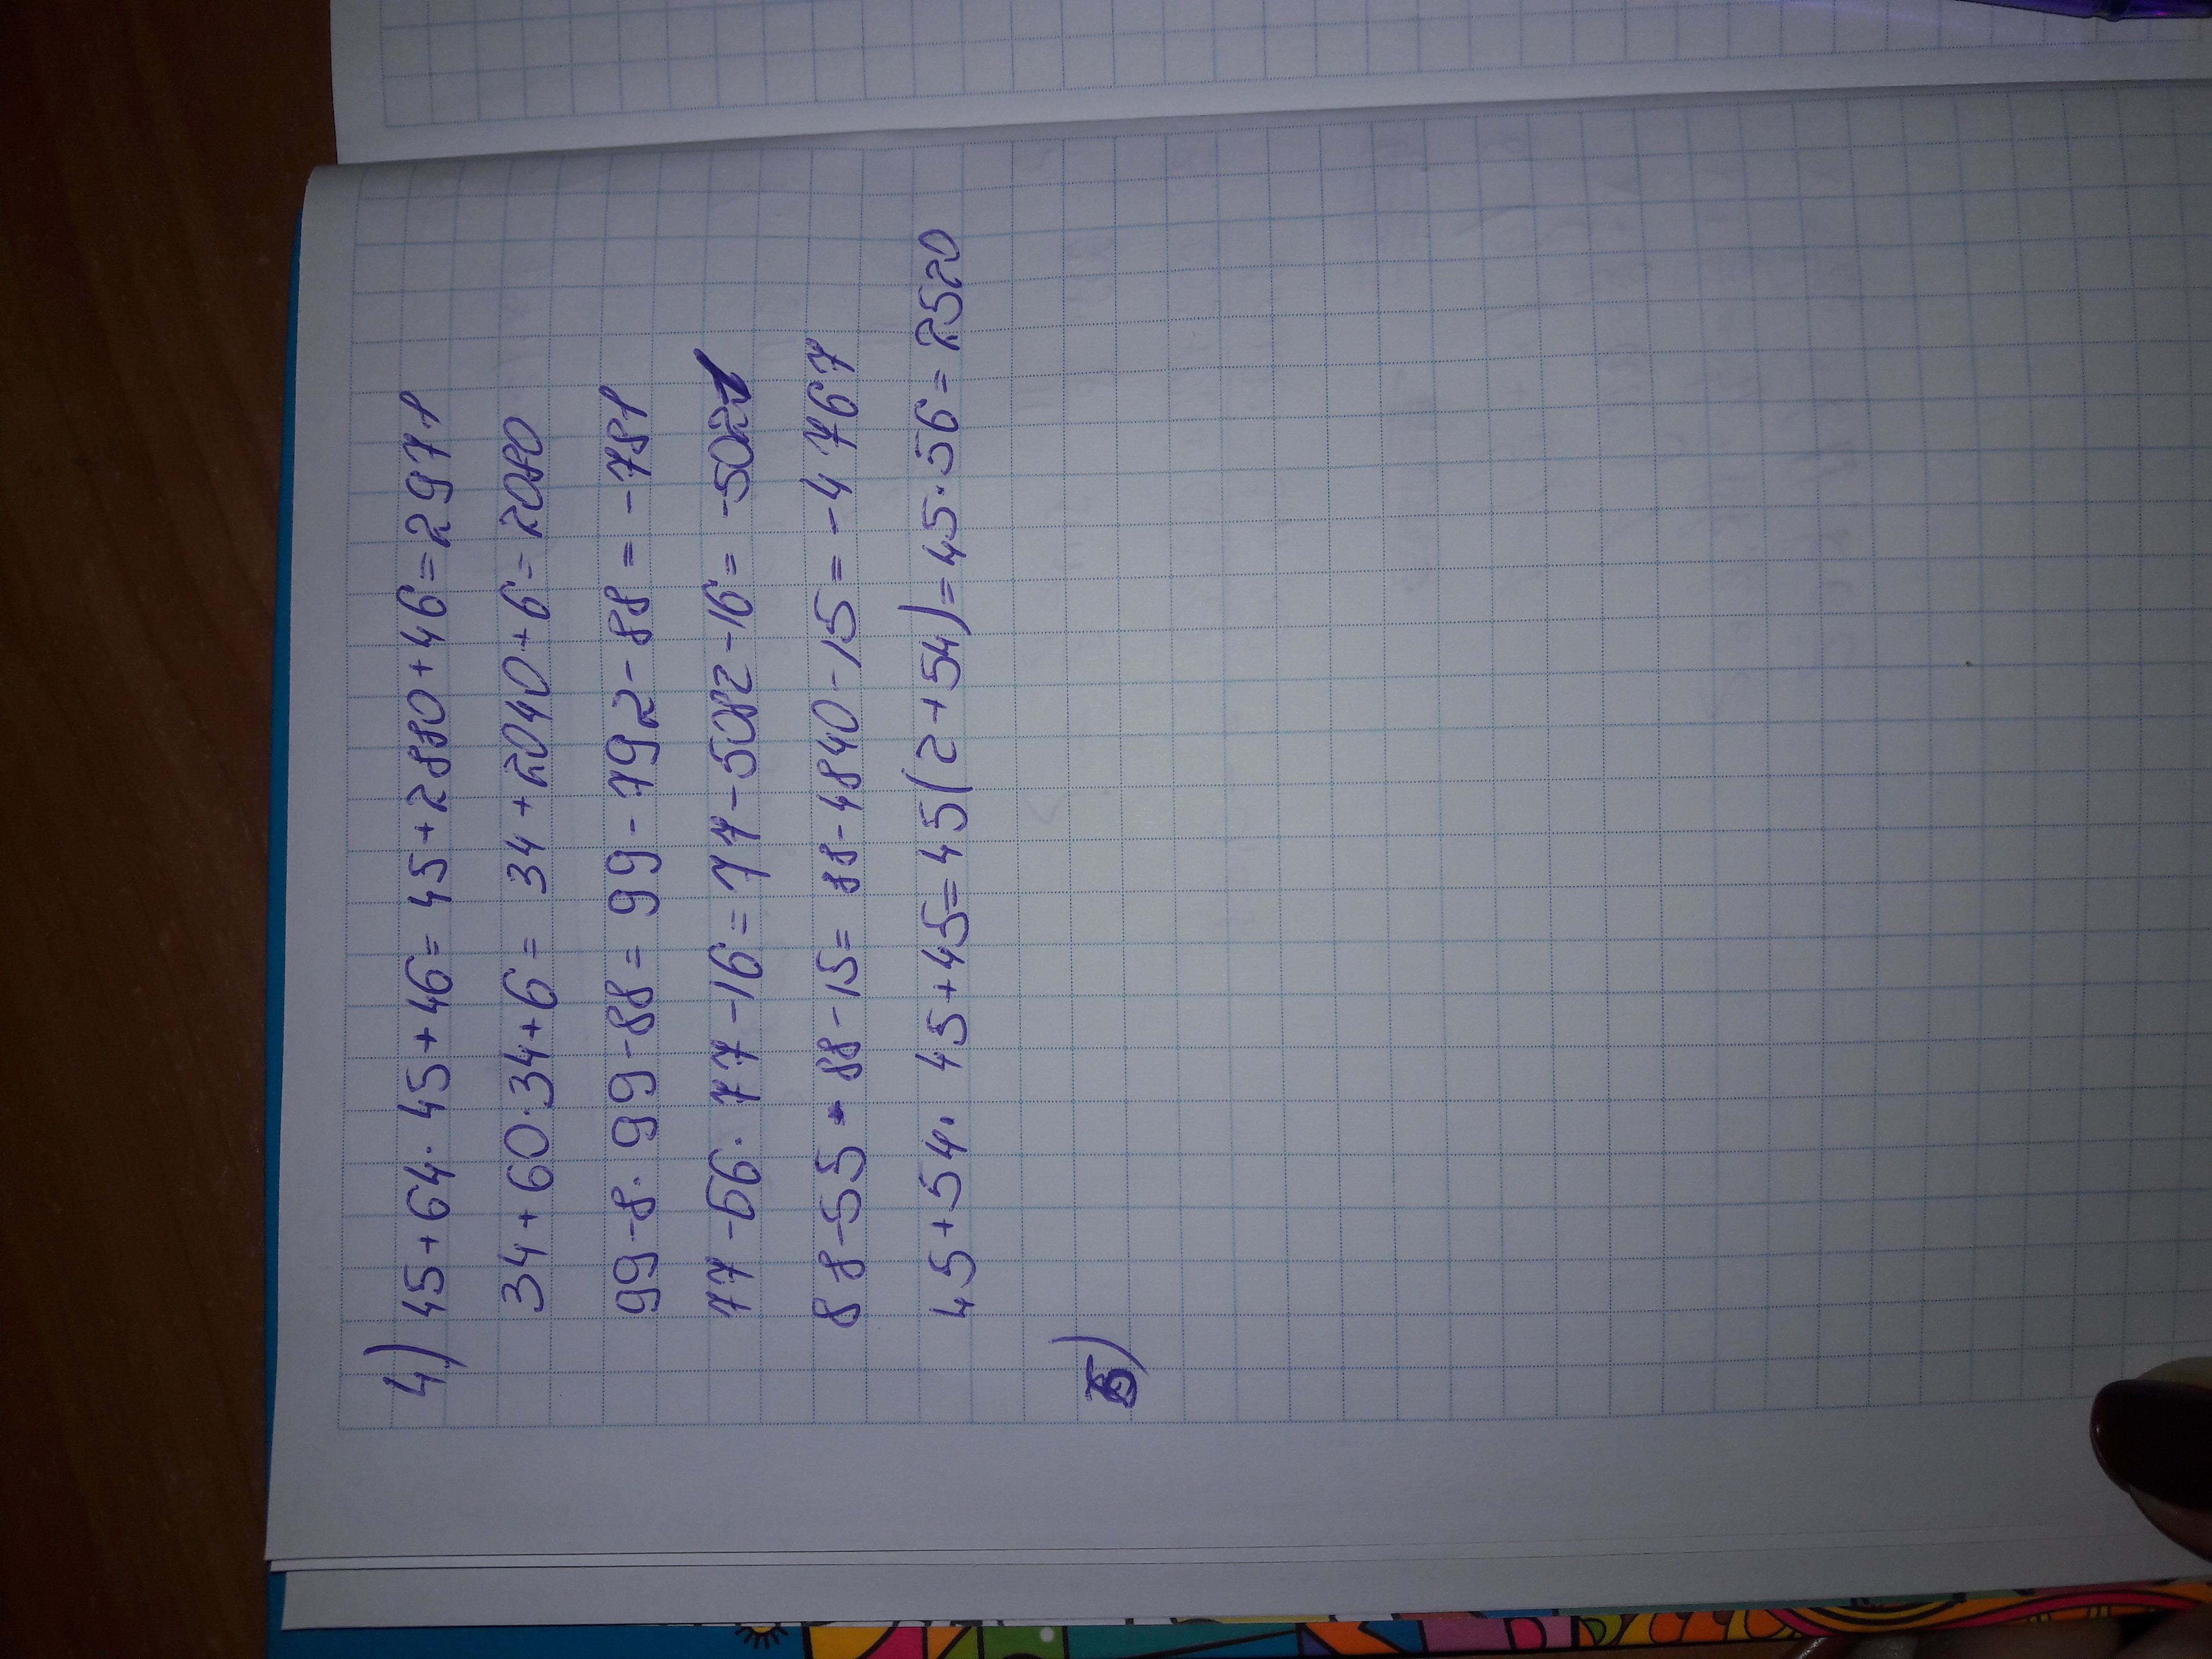 4) 45+64·45+46=45+2880+46=2971
34+60·34+6=34+2040+6=2080
99-8·99-88=99-792-88=-781
77-66·77-16=77-5082-16=-5021
88-55·88-15=88-4840-15=-4767
45+54·45+45=45(2+54)=45·56=2520
5)